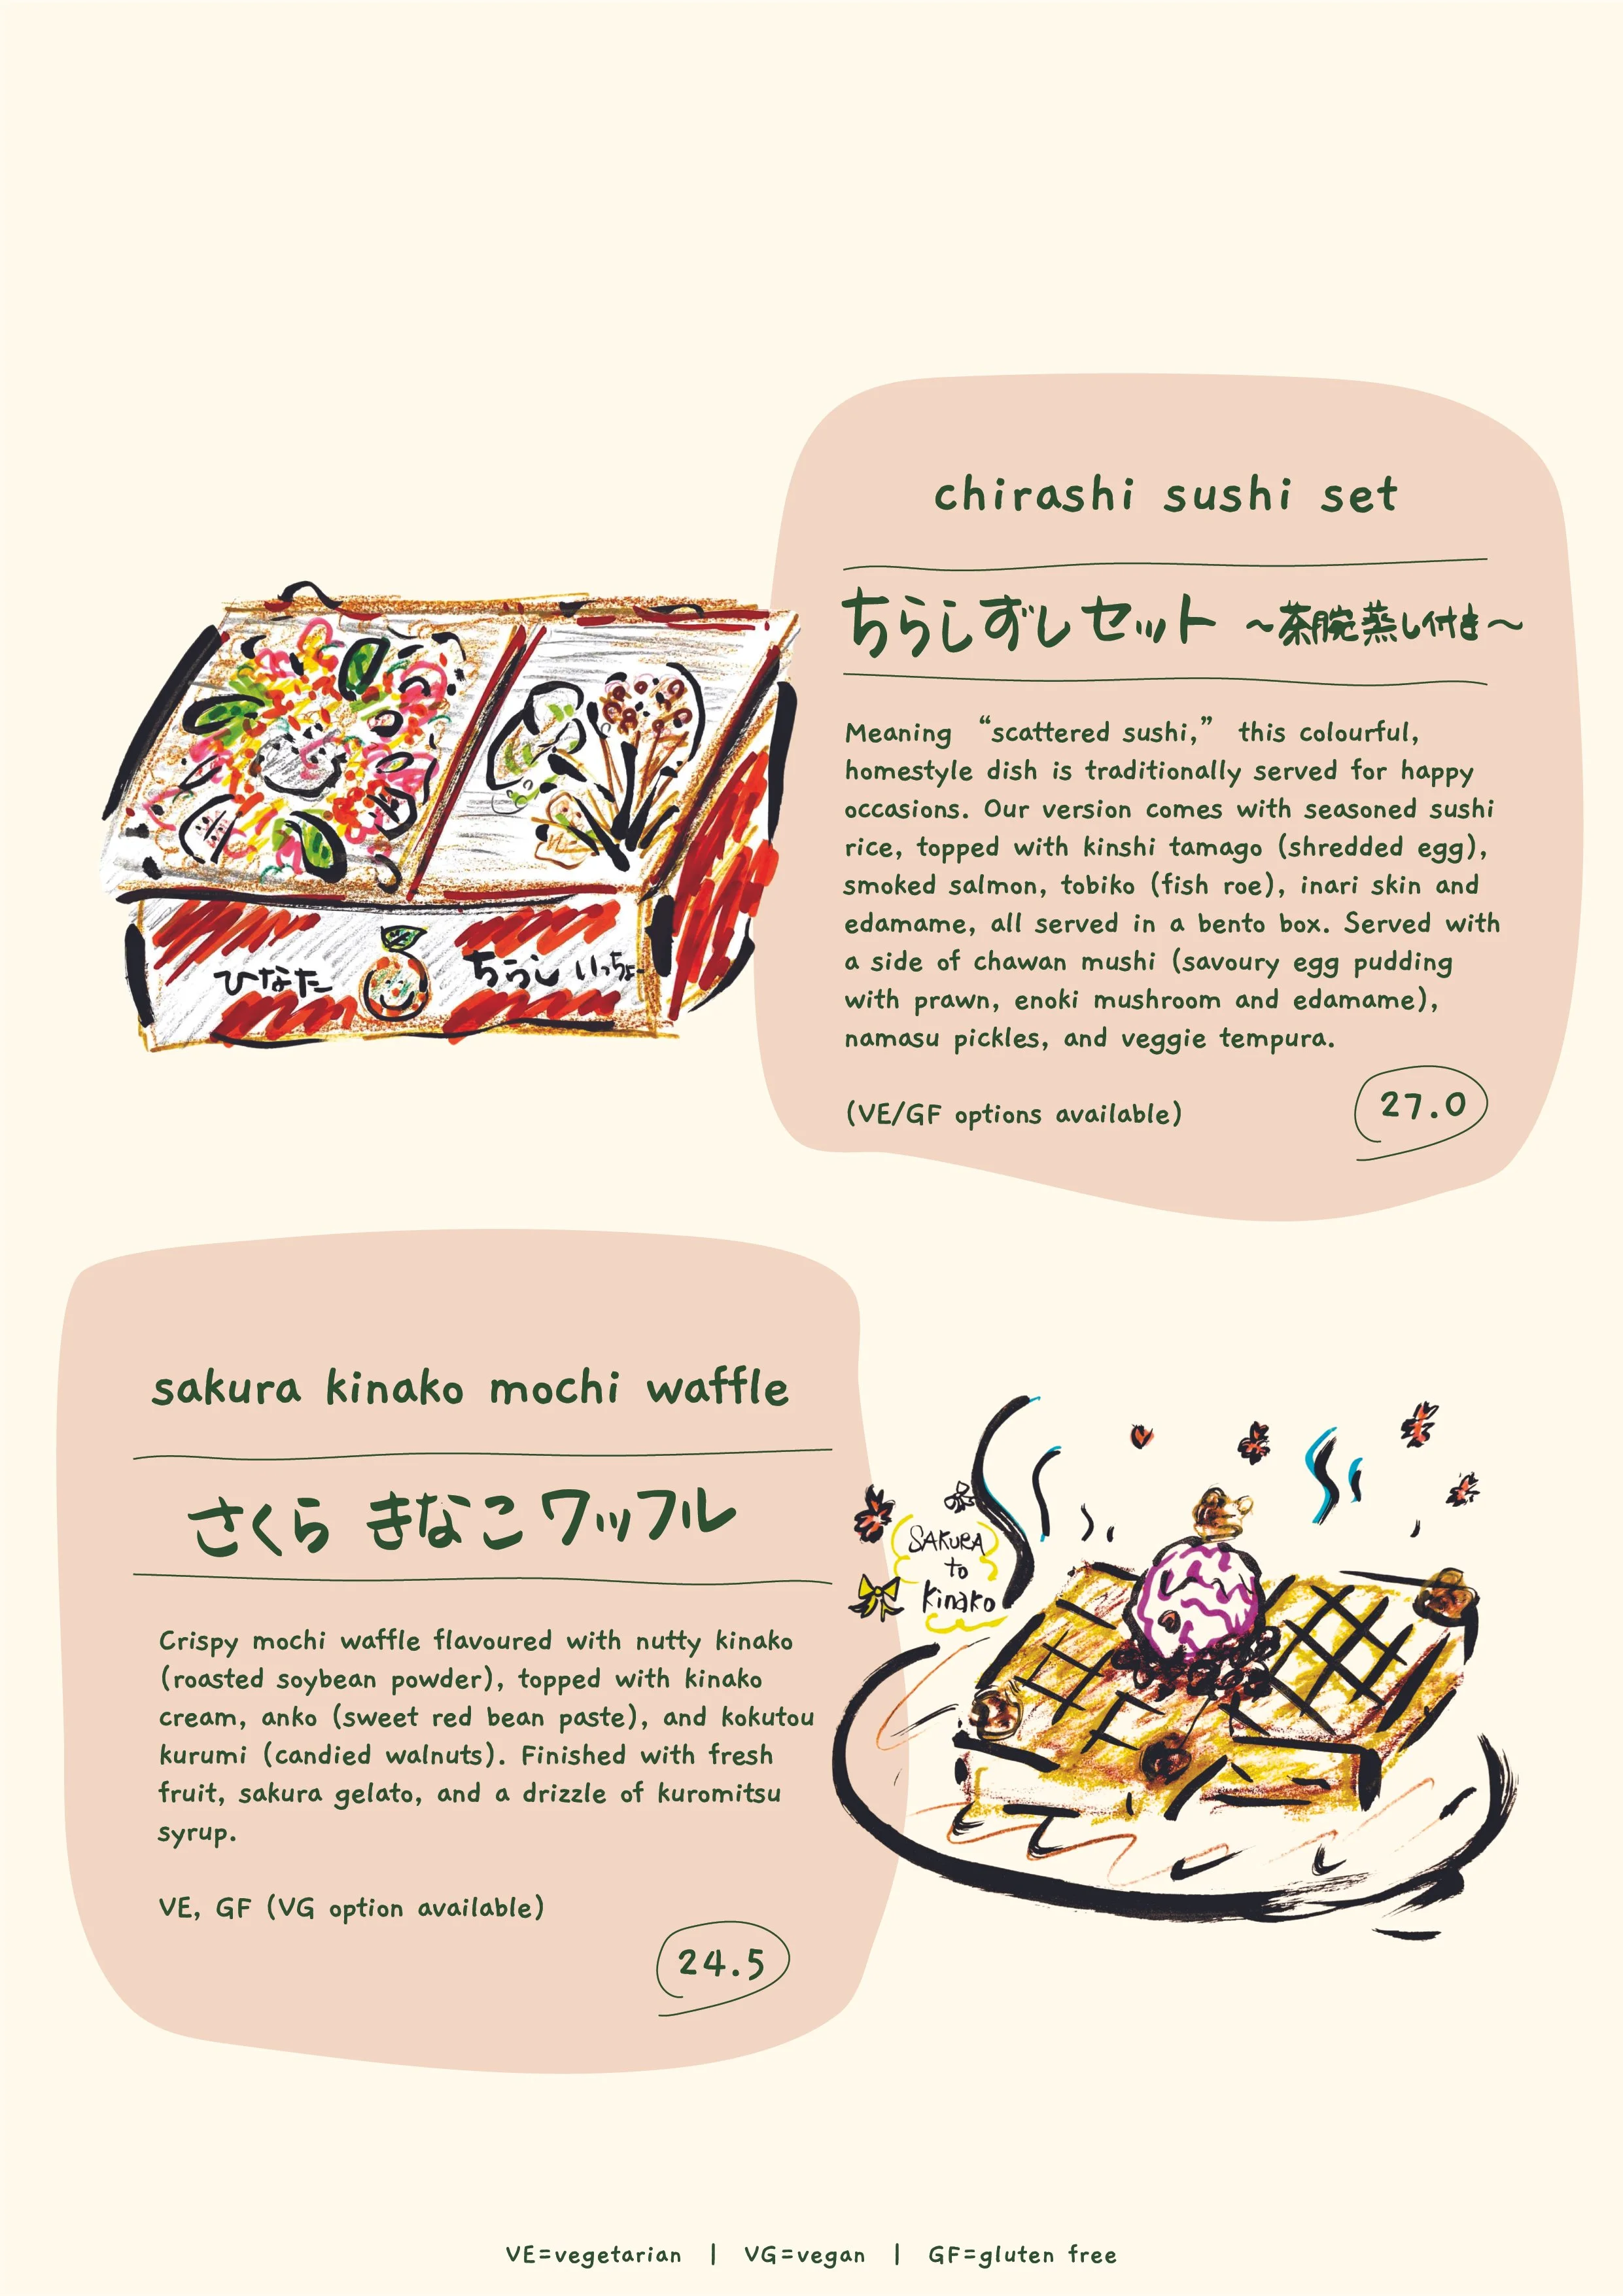 chirashi sushi set
ちらしずしセット ~茶腕蒸し付き~
Meaning “scattered sushi,” this colourful,
homestyle dish is traditionally served for happy
occasions. Our version comes with seasoned sushi
rice, topped with kinshi tamago (shredded egg),
smoked salmon, tobiko (fish roe), inari skin and
edamame, all served in a bento box. Served with
a side of chawan mushi (savoury egg pudding
with prawn, enoki mushroom and edamame),
namasu pickles, and veggie tempura.
(VE/GF options available)
27.0
ひなた ちらし いっちょー
sakura kinako mochi waffle
さくら きなこ ワッフル
Crispy mochi waffle flavoured with nutty kinako
(roasted soybean powder), topped with kinako
cream, anko (sweet red bean paste), and kokutou
kurumi (candied walnuts). Finished with fresh
fruit, sakura gelato, and a drizzle of kuromitsu
syrup.
VE, GF (VG option available)
24.5
SAKURA
to
Kinako
VE=vegetarian | VG=vegan | GF=gluten free